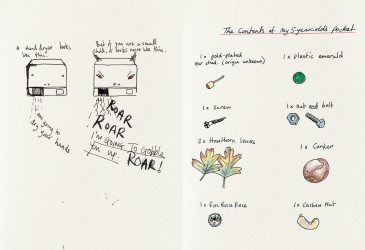 A hand dryer looks
like this.
But if you are a small
child, it looks more like this.
I am going to
dry your hands.
ROAR
ROAR
I'm GOING To Gobble
You up.
ROAR!
The Contents of my 5 year old's Pocket
1x gold-plated
ear stud. (origin unknown)
1x Plastic emerald
1x Screw
1x Nut and bolt
2x Hawthorn Leaves
1x Conker
1x Five Pence Piece
1x Cashew Nut